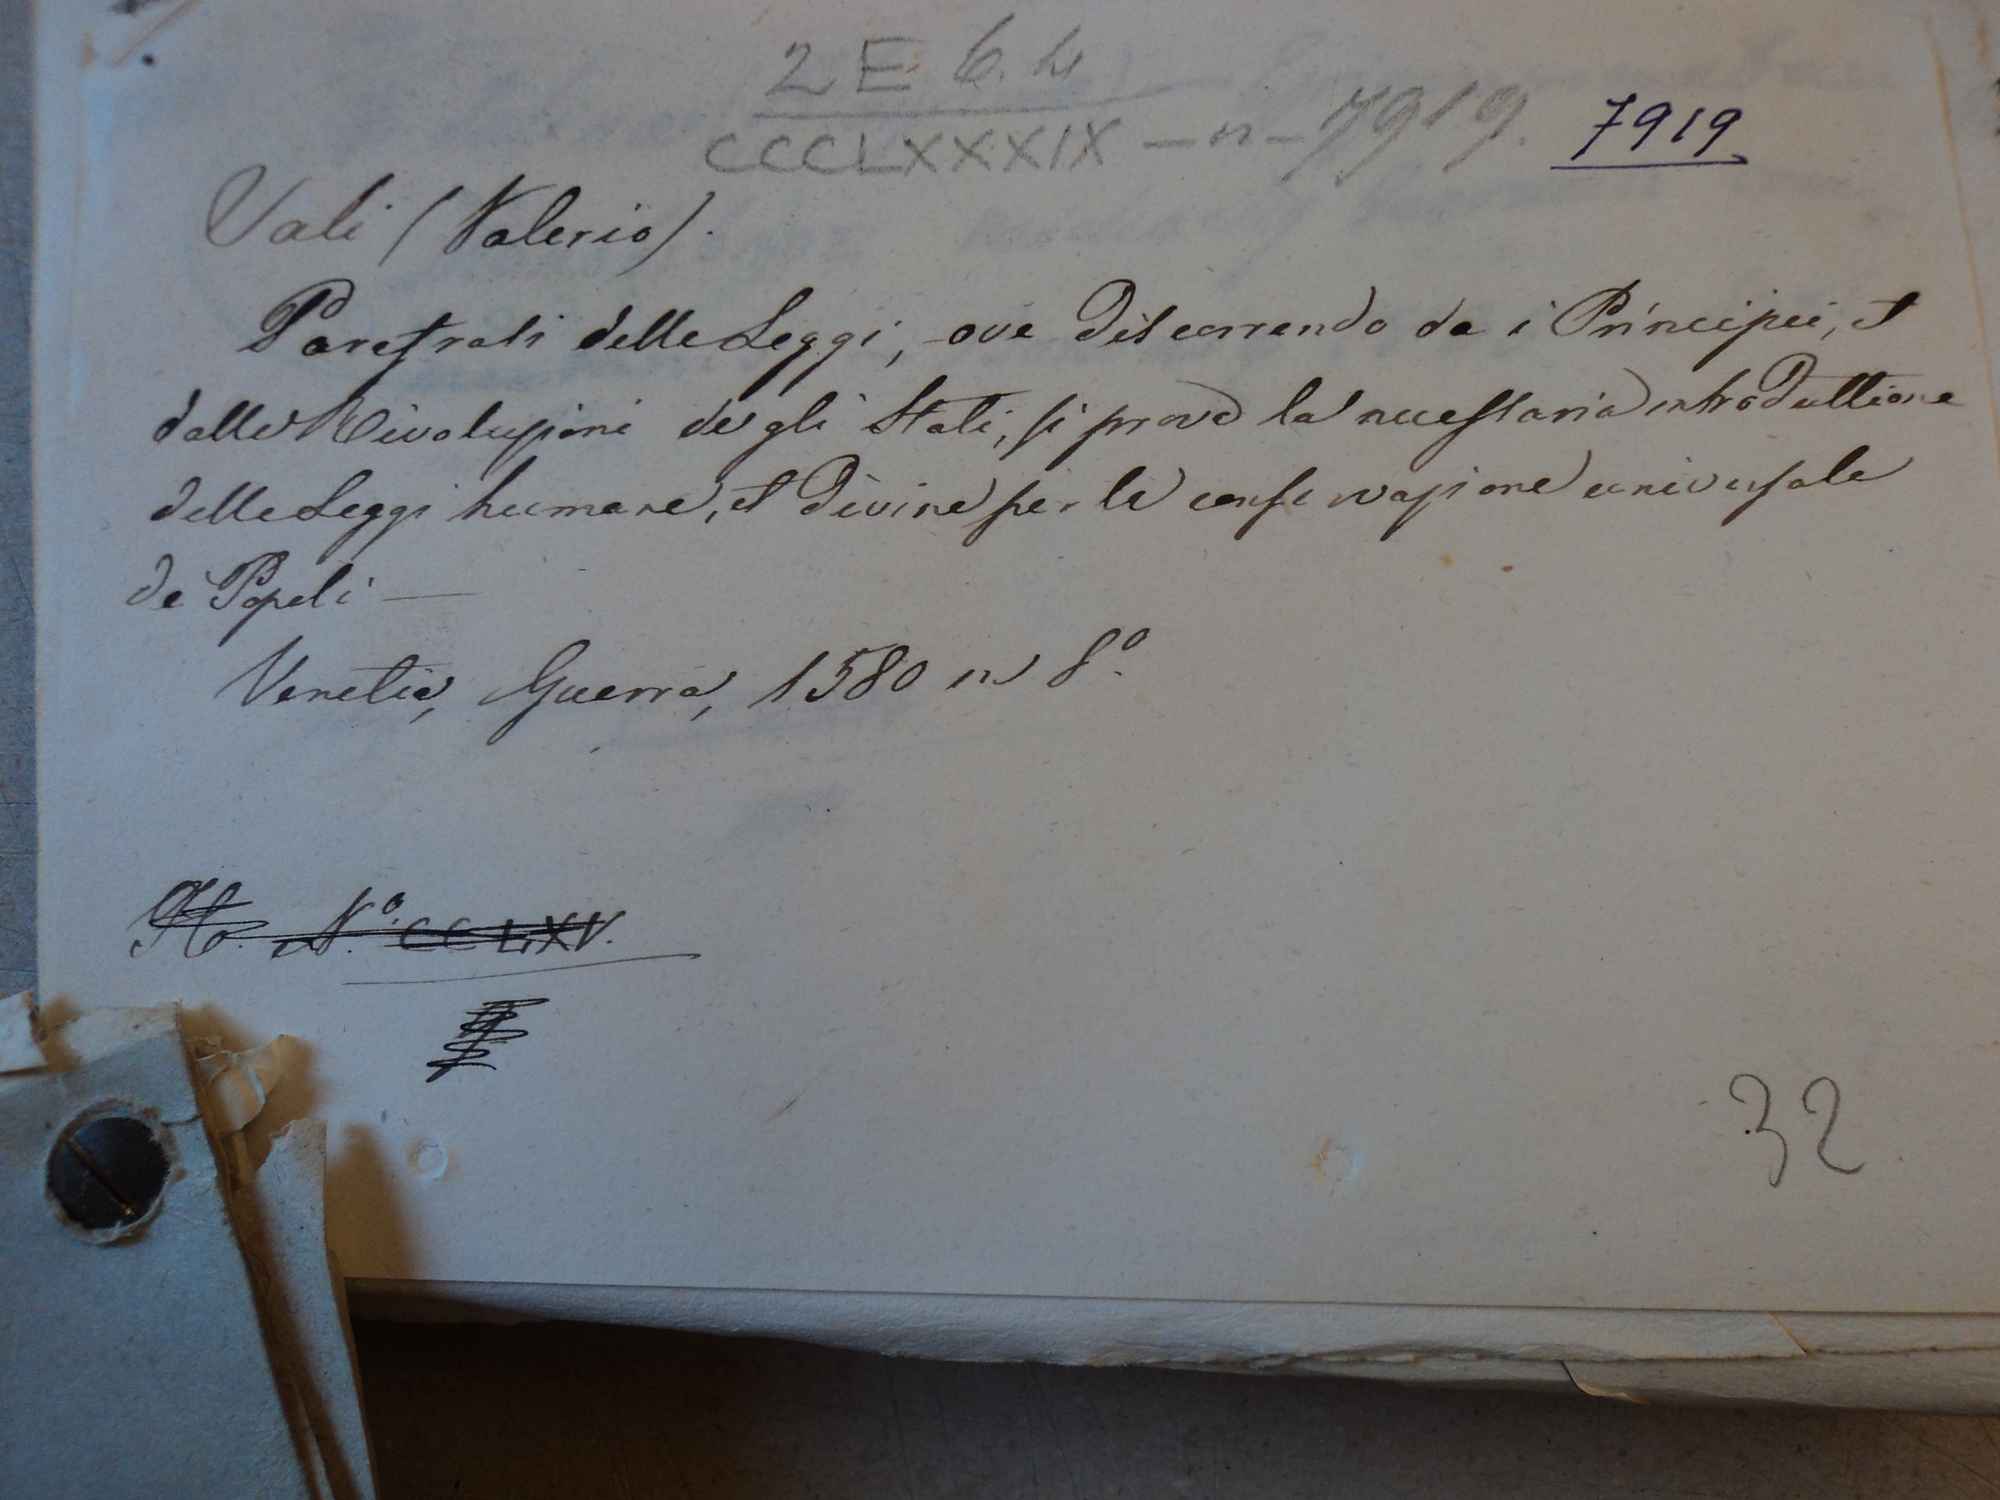 2 E 6. 4
CCCLXXXIX — n — 7919. 7919
Vali (Valerio).
delle Leggi, ove discorrendo da i Principii, et
dalle Rivoluzioni degli Stati, si prova la necessaria introduttione
delle Leggi humane, et Divine per la conservazione universale
de Popoli —
Venetia, Guerra, 1580 in 8º.
Nº. CCLXV.
32